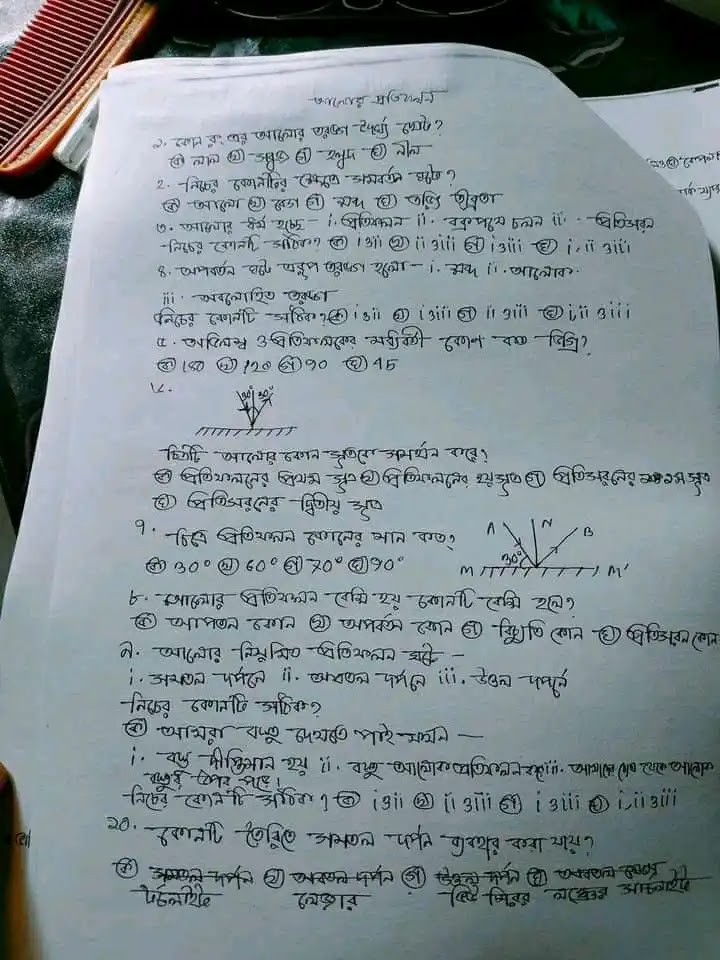 আলোর প্রতিফলন
১. কোন রং এর আলোর তরঙ্গ দৈর্ঘ্য ছোট?
ⓚ লাল ⓛ সবুজ ⓖ হলুদ ⓗ নীল
২. নিচের কোনটির ক্ষেত্রে অসমবর্তন ঘটে?
ⓚ আলো ⓛ তাপ ⓖ শব্দ ⓗ তড়িৎ তীব্রতা
৩. আলোর ধর্ম হচ্ছে - i. প্রতিফলন ii. বক্রপথে চলন iii. প্রতিসরণ
নিচের কোনটি সঠিক? ⓚ i ও ii ⓛ ii ও iii ⓖ i ও iii ⓗ i, ii ও iii
৪. অপবর্তন ঘটে এরূপ তরঙ্গ হলো - i. শব্দ ii. আলোক
iii. অবলোহিত তরঙ্গ
নিচের কোনটি সঠিক? ⓚ i ও ii ⓛ i ও iii ⓖ ii ও iii ⓗ i, ii ও iii
৫. অভিলম্ব ও প্রতিফলকের মধ্যবর্তী কোণ কত ডিগ্রি?
ⓚ 180 ⓛ 120 ⓖ 90 ⓗ 45
৬.
30° 30°
চিত্রটি আলোর কোন সূত্রকে সমর্থন করে?
ⓚ প্রতিফলনের প্রথম সূত্র ⓛ প্রতিফলনের ২য় সূত্র ⓖ প্রতিসরনের ১ম সূত্র
ⓗ প্রতিসরনের দ্বিতীয় সূত্র
৭. চিত্রে প্রতিফলন কোনের মান কত?
A N B
30°
M M'
ⓚ 30° ⓛ 60° ⓖ 70° ⓗ 90°
৮. আলোর প্রতিফলন বেশি হয় কোনটি বেশি হলে?
ⓚ আপতন কোন ⓛ অপবর্তন কোন ⓖ বিচ্যুতি কোন ⓗ প্রতিসরন কোন
৯. আলোর নিয়মিত প্রতিফলন ঘটে -
i. সমতল দর্পনে ii. অবতল দর্পনে iii. উত্তল দর্পনে
নিচের কোনটি সঠিক?
ⓚ আমরা বস্তু দেখতে পাই যখন -
i. বস্তু দীপ্তিমান হয় ii. বস্তু আলোক প্রতিফলন করে iii. আমাদের চোখ থেকে আলোক
বস্তুর উপর পড়ে।
নিচের কোনটি সঠিক? ⓚ i ও ii ⓛ ii ও iii ⓖ i ও iii ⓗ i, ii ও iii
১০. কোনটি তৈরিতে সমতল দর্পন ব্যবহার করা যায়?
ⓚ সমতল দর্পন ⓛ অবতল দর্পন ⓖ উত্তল দর্পন ⓗ অবতল
টর্চলাইট লেজার সার্চলাইট